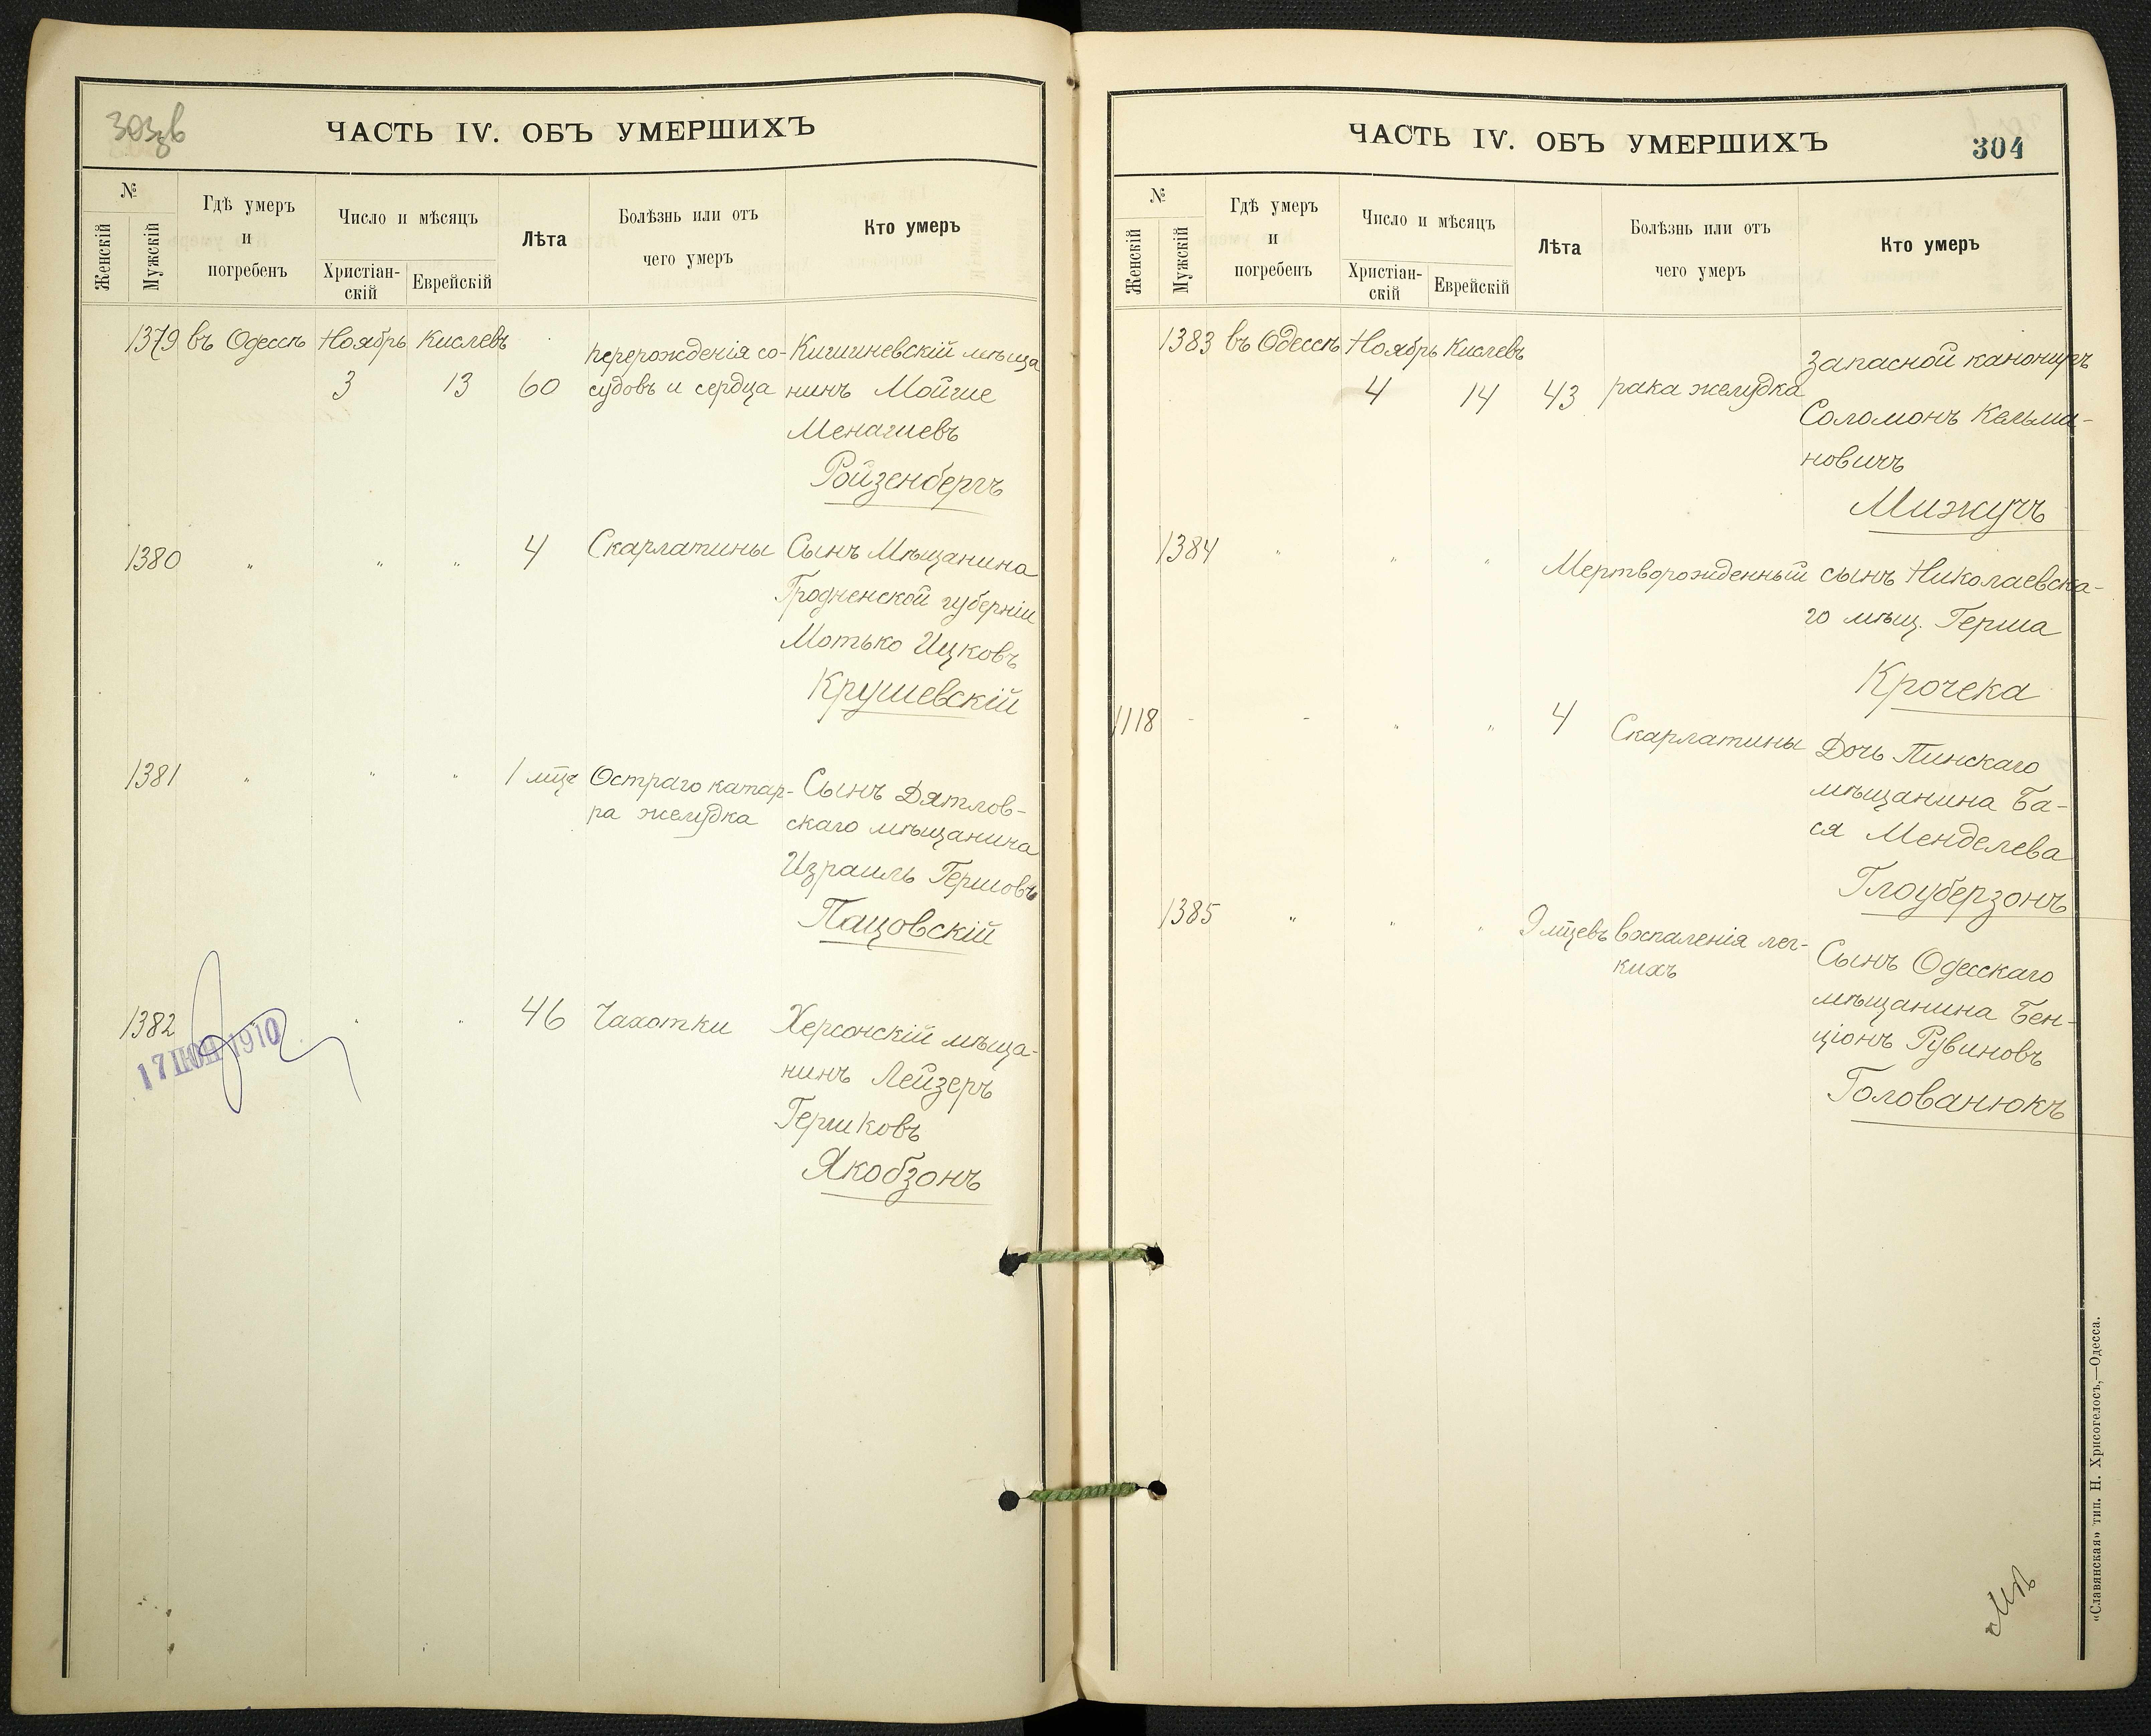 303 зв
ЧАСТЬ IV. ОБЪ УМЕРШИХЪ
№
Женскій
Мужскій
Гдѣ умеръ
и
погребенъ
Число и мѣсяцъ
Христіан-
скій
Еврейскій
Лѣта
Болѣзнь или отъ
чего умеръ
Кто умеръ
1379 въ Одессѣ Ноябрь Кислевъ
3 13 60
перерожденія со-
судовъ и сердца
Кишиневскій мѣща
нинъ Мойше
Менашевъ
Ройзенбергъ
1380 " " " 4 Скарлатины Сынъ Мѣщанина
Гродненской губерніи
Мотько Ицковъ
Крушевскій
1381 " " " 1 мѣц Остраго катар-
ра желудка
Сынъ Дятлов-
скаго мѣщанина
Израиль Гершовъ
Пацовскій
1382 " " 46 Чахотки Херсонскій мѣща-
нинъ Лейзеръ
Гершковъ
Якобзонъ
17 ІЮН 1910
ЧАСТЬ IV. ОБЪ УМЕРШИХЪ
304
№
Женскій
Мужскій
Гдѣ умеръ
и
погребенъ
Число и мѣсяцъ
Христіан-
скій
Еврейскій
Лѣта
Болѣзнь или отъ
чего умеръ
Кто умеръ
1383 въ Одессѣ Ноябрь Кислевъ
4 14 43 рака желудка
Запасной канониръ
Соломонъ Кельма-
новичъ
Мижучъ
1384 " " " Мертворожденный сынъ Николаевска-
го мѣщ. Герша
Крочека
1118 - - " " 4 Скарлатины Дочь Пинскаго
мѣщанина Ба-
ся Менделева
Глоуберзонъ
1385 " " " 9 мѣцевъ воспаленія лег-
кихъ
Сынъ Одесскаго
мѣщанина Бен-
ціонъ Рувиновъ
Голованюкъ
«Славянская» тип. Н. Хрисогелосъ,—Одесса.